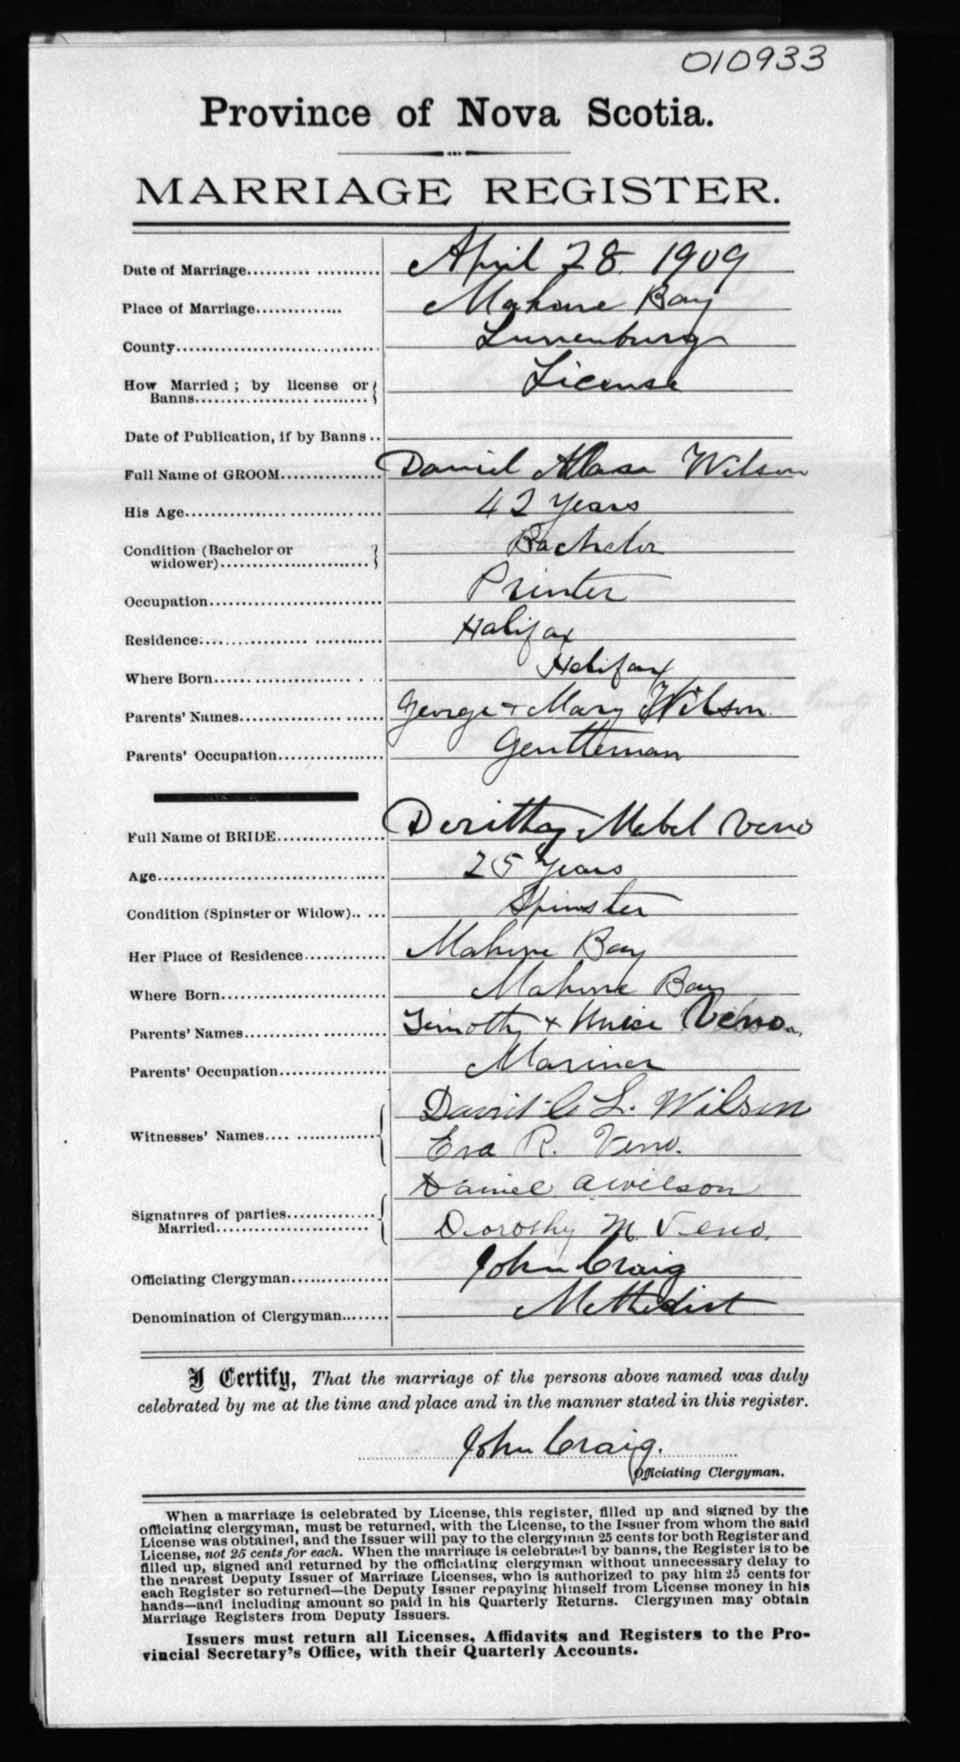 010933
Province of Nova Scotia.
MARRIAGE REGISTER.
Date of Marriage.......... ........... April 28. 1909
Place of Marriage.............. Mahone Bay
County.............................. Lunenburg
How Married ; by license or License
Banns...............................
Date of Publication, if by Banns ..
Full Name of GROOM............... Daniel Wilson
His Age............................. 42 Years
Condition (Bachelor or Bachelor
widower)..........................
Occupation.......................... Printer
Residence........................... Halifax
Where Born......................... Halifax
Parents' Names...................... George + Mary Wilson
Parents' Occupation................. Gentleman
Full Name of BRIDE................ Doritthy Mabel Veno
Age................................. 25 Years
Condition (Spinster or Widow).. ... Spinster
Her Place of Residence............ Mahone Bay
Where Born......................... Mahone Bay
Parents' Names...................... Timothy + Veno
Parents' Occupation................. Mariner
Witnesses' Names.... ............... L. Wilson
Eva R. Veno.
Signatures of parties.............. Daniel A Wilson
Married........................ Dorothy M. Veno.
Officiating Clergyman.............. John Craig
Denomination of Clergyman........ Methodist
I Certify, That the marriage of the persons above named was duly
celebrated by me at the time and place and in the manner stated in this register.
John Craig.
Officiating Clergyman.
When a marriage is celebrated by License, this register, filled up and signed by the
officiating clergyman, must be returned, with the License, to the Issuer from whom the said
License was obtained, and the Issuer will pay to the clergyman 25 cents for both Register and
License, not 25 cents for each. When the marriage is celebrated by banns, the Register is to be
filled up, signed and returned by the officiating clergyman without unnecessary delay to
the nearest Deputy Issuer of Marriage Licenses, who is authorized to pay him 25 cents for
each Register so returned—the Deputy Issuer repaying himself from License money in his
hands—and including amount so paid in his Quarterly Returns. Clergymen may obtain
Marriage Registers from Deputy Issuers.
Issuers must return all Licenses, Affidavits and Registers to the Pro-
vincial Secretary's Office, with their Quarterly Accounts.